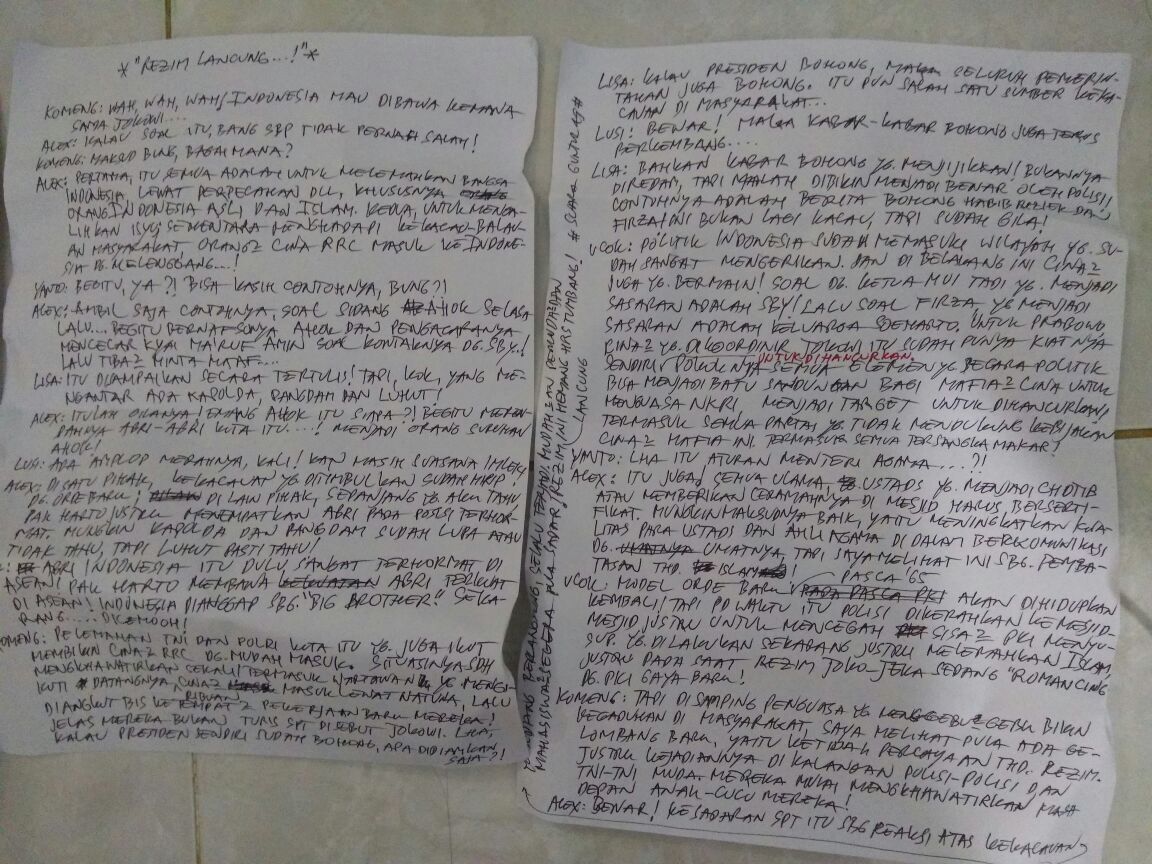 *"REZIM LANCUNG...!"*
KOMENG: WAH, WAH, WAH, INDONESIA MAU DIBAWA KEMANA
SAMA JOKOWI...
ALEX: KALAU SOAL ITU, BANG SBP TIDAK PERNAH SALAH!
KOMENG: MAKSUD BUNG, BAGAIMANA?
ALEX: PERTAMA, ITU SEMUA ADALAH UNTUK MELEMAHKAN BANGSA
INDONESIA, LEWAT PERPECAHAN DLL, KHUSUSNYA
ORANG INDONESIA ASLI DAN ISLAM. KEDUA, UNTUK MENGA-
LIHKAN ISYU, SEMENTARA MENGHADAPI KEKACAU-BALAU-
AN MASYARAKAT, ORANG2 CINA RRC MASUK KE INDONE-
SIA DG. MELENGGANG...!
YANTO: BEGITU, YA?! BISA KASIH CONTOHNYA, BUNG?!
ALEX: AMBIL SAJA CONTOHNYA, SOAL SIDANG AHOK SELASA
LALU... BEGITU BERNAFSUNYA AHOK DAN PENGACARANYA
MENCECAR KYAI MA'RUF AMIN SOAL KONTAKNYA DG. SBY!
LALU TIBA2 MINTA MAAF...
LISA: ITU DISAMPAIKAN SECARA TERTULIS! TAPI, KOK, YANG ME-
NGANTAR ADA KAPOLDA, PANGDAM DAN LUHUT!
ALEX: ITULAH ORANYA! EMANG AHOK ITU SIAPA?! BEGITU MEREN-
DAHNYA ABRI-ABRI KITA ITU....! MENJADI ORANG SURUHAN
AHOK!
LUSI: ADA AMPLOP MERAHNYA, KALI! KAN MASIH SUASANA IMLEK!
ALEX: DISATU PIHAK, KEKACAUAN YG DITIMBULKAN SUDAH MIRIP
DG. ORDE BARU; DI LAIN PIHAK, SEPANJANG YG. AKU TAHU
PAK HARTO JUSTRU MENEMPATKAN ABRI PADA POSISI TERHOR-
MAT. MUNGKIN KAPOLDA DAN PANGDAM SUDAH LUPA ATAU
TIDAK TAHU, TAPI LUHUT PASTI TAHU!
ABRI INDONESIA ITU DULU SANGAT TERHORMAT DI
ASEAN! PAK HARTO MEMBAWA ABRI TERKUAT
DI ASEAN! INDONESIA DIANGGAP SBG. "BIG BROTHER." SEKA-
RANG.....DICEMOOH!
KOMENG: PELEMAHAN TNI DAN POLRI KITA ITU YG. JUGA IKUT
MEMBIKIN CINA2 RRC DG. MUDAH MASUK. SITUASINYA SDH
MENGKHAWATIRKAN SEKALI! TERMASUK WARTAWAN YG MENGI-
KUTI DATANGNYA CINA2 MASUK LEWAT NATUNA, LALU
RIBUAN
DIANGKUT BIS KE TEMPAT2 PEKERJAAN BARU MEREKA!
JELAS MEREKA BUKAN TURIS SPT DISEBUT JOKOWI. LHA,
KALAU PRESIDEN SENDIRI SUDAH BOHONG, APA DIDIAMKAN
SAJA?!
LISA: KALAU PRESIDEN BOHONG, MAKA SELURUH PEMERIN-
TAHAN JUGA BOHONG. ITU PUN SALAH SATU SUMBER KEKA-
CAUAN DI MASYARAKAT...
LUSI: BENAR! MAKA KABAR-KABAR BOHONG JUGA TERUS
BERKEMBANG....
LISA: BAHKAN KABAR BOHONG YG. MENJIJIKKAN! BUKANNYA
DIREDAM, TAPI MALAH DIBIKIN MENJADI BENAR OLEH POLISI!
CONTOHNYA ADALAH BERITA BOHONG HABIB RIZIEK DAN
FIRZA! INI BUKAN LAGI KACAU, TAPI SUDAH GILA!
UCOK: POLITIK INDONESIA SUDAH MEMASUKI WILAYAH YG. SU-
DAH SANGAT MENGERIKAN. DAN DI BELAKANG INI CINA2
JUGA YG. BERMAIN! SOAL DG. KETUA MUI TADI YG. MENJADI
SASARAN ADALAH SBY! LALU SOAL FIRZA YG MENJADI
SASARAN ADALAH KELUARGA SOEHARTO. UNTUK PRABOWO
CINA2 YG. DIKOORDINIR JOKOWI ITU SUDAH PUNYA KIATNYA
SENDIRI. POKOKNYA SEMUA ELEMEN YG. SECARA POLITIK
UNTUK DIHANCURKAN.
BISA MENJADI BATU SANDUNGAN BAGI MAFIA2 CINA UNTUK
MENGUASA NKRI, MENJADI TARGET UNTUK DIHANCURKAN!
TERMASUK SEMUA PARTAI YG TIDAK MENDUKUNG KEBIJAKAN
CINA2 MAFIA INI. TERMASUK SEMUA TERSANGKA MAKAR!
YANTO: LHA ITU ATURAN MENTERI AGAMA....?!
ALEX: ITU JUGA! SEMUA ULAMA, USTADS YG. MENJADI CHOTIB
ATAU MEMBERIKAN CERAMAHNYA DI MESJID HARUS BERSERTI-
FIKAT. MUNGKIN MAKSUDNYA BAIK, YAITU MENINGKATKAN KUA-
LITAS PARA USTADS DAN AHLI AGAMA DI DALAM BERKOMUNIKASI
DG. UMATNYA, TAPI SAYA MELIHAT INI SBG. PEMBA-
TASAN THD. ISLAM!
PASCA '65
UCOK: MODEL ORDE BARU PADA PASCA PKI AKAN DIHIDUPKAN
KEMBALI! TAPI PD WAKTU ITU POLISI DIKERAHKAN KE MESJID-
MESJID JUSTRU UNTUK MENCEGAH SISA2 PKI MENYU-
SUP. YG. DILAKUKAN SEKARANG JUSTRU MELEMAHKAN ISLAM,
JUSTRU PADA SAAT REZIM JOKO-JEKA SEDANG "ROMANCING
DG. PKI GAYA BARU!
KOMENG: TAPI DI SAMPING PENGUASA YG MENGGEBU2 BIKIN
KEGADUHAN DI MASYARAKAT, SAYA MELIHAT PULA ADA GE-
LOMBANG BARU, YAITU KETIDAK PERCAYAAN THD. REZIM.
JUSTRU KEJADIANNYA DI KALANGAN POLISI-POLISI DAN
TNI-TNI MUDA. MEREKA MULAI MENGKHAWATIRKAN MASA
DEPAN ANAK-CUCU MEREKA!
ALEX: BENAR! KESADARAN SPT ITU SBG REAKSI ATAS KEKACAUAN
SELALU TERJADI. MUDAH2AN PEMUDA DAN
MAHASISWA2 SEGERA PULA SADAR, REZIM INI MEMANG HRS TUMBANG!
LANCUNG